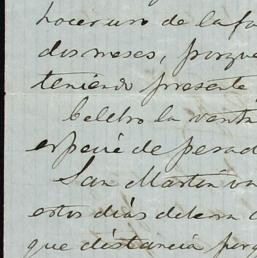 hacer uso de la fa
dos meses, porque
teniendo presente
Celebro la venta
especie de pesad
San Martin va
estos días
que distancia porq